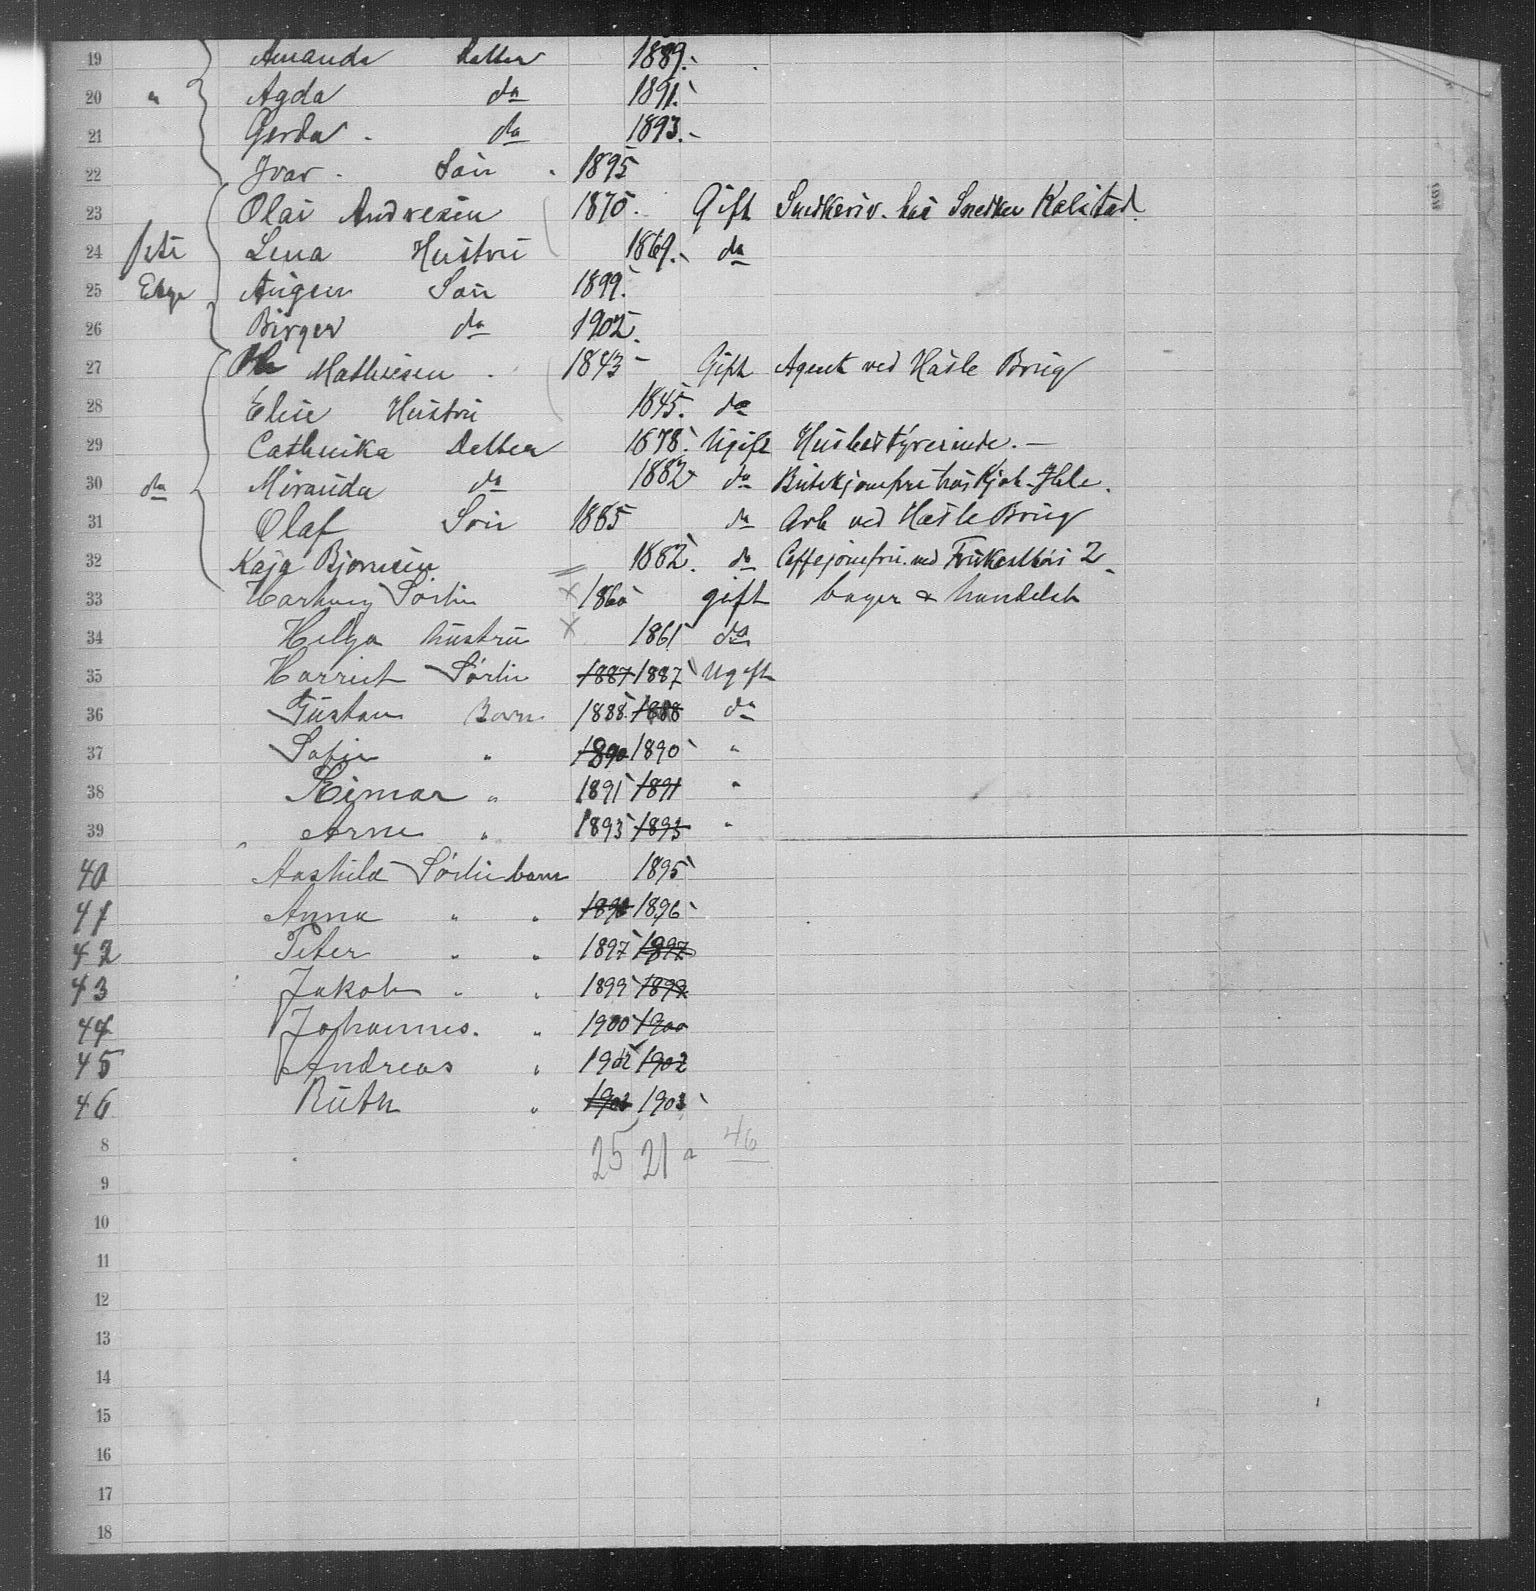 19 Amanda Datter 1889.
20 " Agda do 1891.
21 Gerda do 1893.
22 Ivar Søn 1895
23 Olai Andresen 1870. Gift Snedkersv. hos Snedker Kalstad.
24 Lena Hustru 1869. do
25 Etage Søn 1899.
26 Birger do 1902.
27 Mathiesen 1843 Gift Agent ved Hasle Brug
28 Elise Hustru 1845. do
29 Cathrika Datter 1878. Ugift Husbestyrerinde.
30 do Miranda do 1882 do Butikjomfru hos Kjøb. Ihle.
31 Olaf Søn 1885 do Arb ved Hasle Brug
32 Kaja Bjørnsen 1882. do Caffejomfru. ved 2
33 Hartvig Sørlie 1860 gift bager & handelsb
34 Helga hustru 1861 do
35 Harriet Sørlie 1887 1887 Ugift
36 Gustav Barn 1888 1888 do
37 Sofie " 1890 1890 "
38 Reimar " 1891 1891 "
39 Arne " 1893 1893 "
40 Aashild Sørlie barn 1895
41 Anna " " 1896
42 Peter " " 1897 1897
43 Jakob " " 1899 1899
44 Johannes. " 1900 1900
45 Andreas " 1902 1902
46 Ruth " 1903 1903
8 25 21 46
9
10
11
12
13
14
15
16
17
18